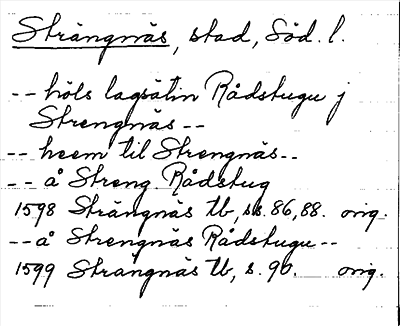 Strängnäs, stad, Söd. l.
-- höls lagsätin Rådstugu j
Strengnäs --
-- heem til Strengnäs --
-- å Streng Rådstug
1598 Strängnäs tb, ss. 86, 88. orig.
-- å Strengnäs Rådstugu --
1599 Strängnäs tb, s. 90. orig.